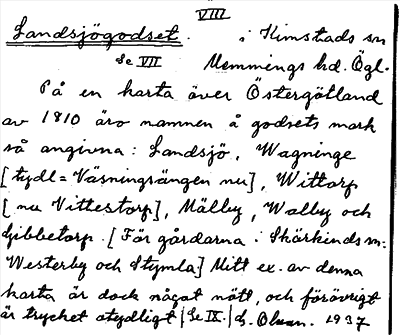 VIII
Landsjögodset. i Kimstads sn
Se VII Memmings hd. Ögl.
På en karta över Östergötland
av 1810 äro namnen å godsets mark
så angivna: Landsjö, Wagninge
[tydl = Väsningsängen nu], Wittorp
[nu Vittestorp], Mälby, Walby och
Gibbetorp. [För gårdarna i Skärkinds sn:
Westerby och Stymla] Mitt ex. av denna
karta är dock något nött, och förövrigt
är trycket otydligt |Se IX.| G. Olsson. 1937